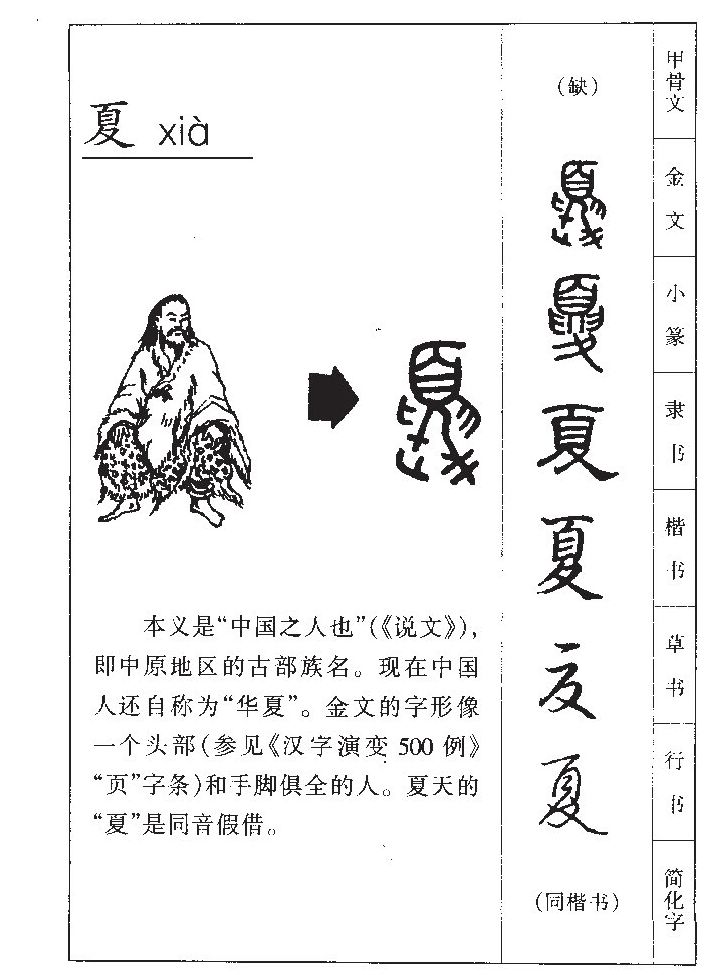 夏 xià
本义是“中国之人也”(《说文》),
即中原地区的古部族名。现在中国
人还自称为“华夏”。金文的字形像
一个头部(参见《汉字演变 500 例》
“页”字条)和手脚俱全的人。夏天的
“夏”是同音假借。
(缺)
夏
夏
夏
夏
夏
夏
(同楷书)
甲骨文
金文
小篆
隶书
楷书
草书
行书
简化字